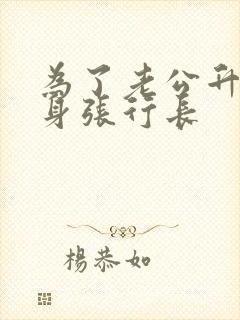 為了老公升
身張行長
楊恭如